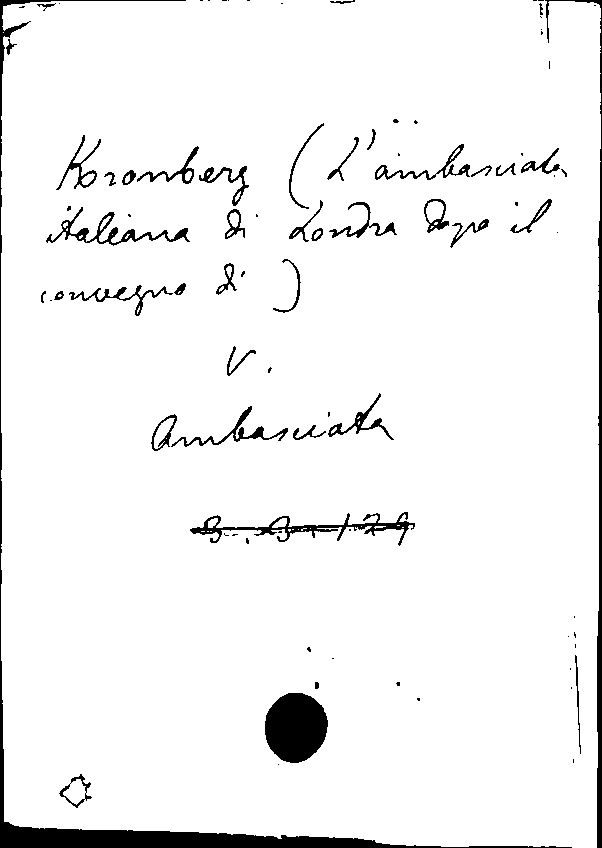 Kronberg (L'ambasciata
italiana di Londra dopo il
convegno di )
V.
Ambasciata
B. B. 129